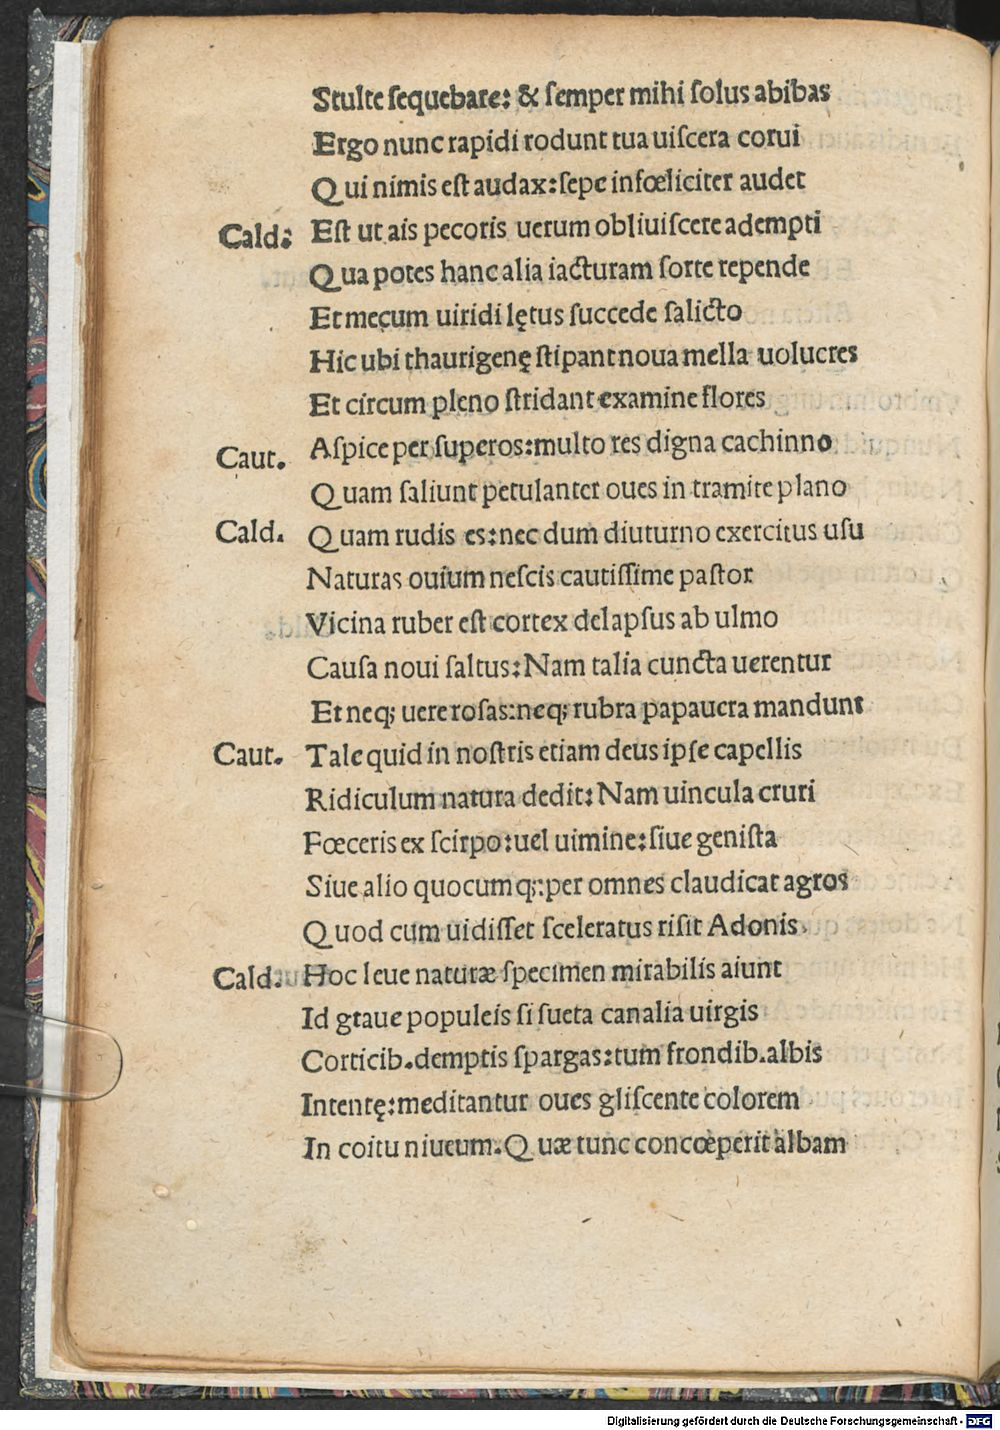 Stulte ſequebare: & ſemper mihi ſolus abibas
Ergo nunc rapidi rodunt tua uiſcera corui
Q ui nimis eſt audax: ſepe infœliciter audet
Cald: Eſt ut ais pecoris uerum obliuiſcere adempti
Q ua potes hanc alia iacturam ſorte repende
Et mecum uiridi lętus ſuccede ſalicto
Hic ubi thaurigenę ſtipant noua mella uolucres
Et circum pleno ſtridant examine flores
Caut. Aſpice per ſuperos: multo res digna cachinno
Q uam ſaliunt petulanter oues in tramite plano
Cald. Q uam rudis es: nec dum diuturno exercitus uſu
Naturas ouium neſcis cautiſſime paſtor
Vicina ruber eſt cortex delapſus ab ulmo
Cauſa noui ſaltus: Nam talia cuncta uerentur
Et neq; uere roſas: neq; rubra papauera mandunt
Caut. Tale quid in noſtris etiam deus ipſe capellis
Ridiculum natura dedit: Nam uincula cruri
Fœceris ex ſcirpo: uel uimine: ſiue geniſta
Siue alio quocumq;: per omnes claudicat agros
Q uod cum uidiſſet ſceleratus riſit Adonis.
Cald. Hoc leue naturæ ſpecimen mirabilis aiunt
Id graue populeis ſi ſueta canalia uirgis
Corticib. demptis ſpargas: tum frondib. albis
Intentę: meditantur oues gliſcente colorem
In coitu niueum. Q uæ tunc concœperit albam
Digitalisierung gefördert durch die Deutsche Forschungsgemeinschaft - DFG